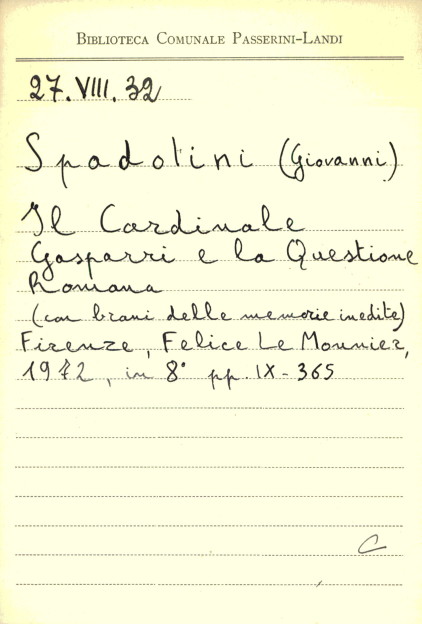 BIBLIOTECA COMUNALE PASSERINI-LANDI
27.VIII.32
Spadolini (Giovanni)
Il Cardinale
Gasparri e la Questione
Romana
(con brani delle memorie inedite)
Firenze, Felice Le Monnier,
1972, in 8° pp. IX-365
C